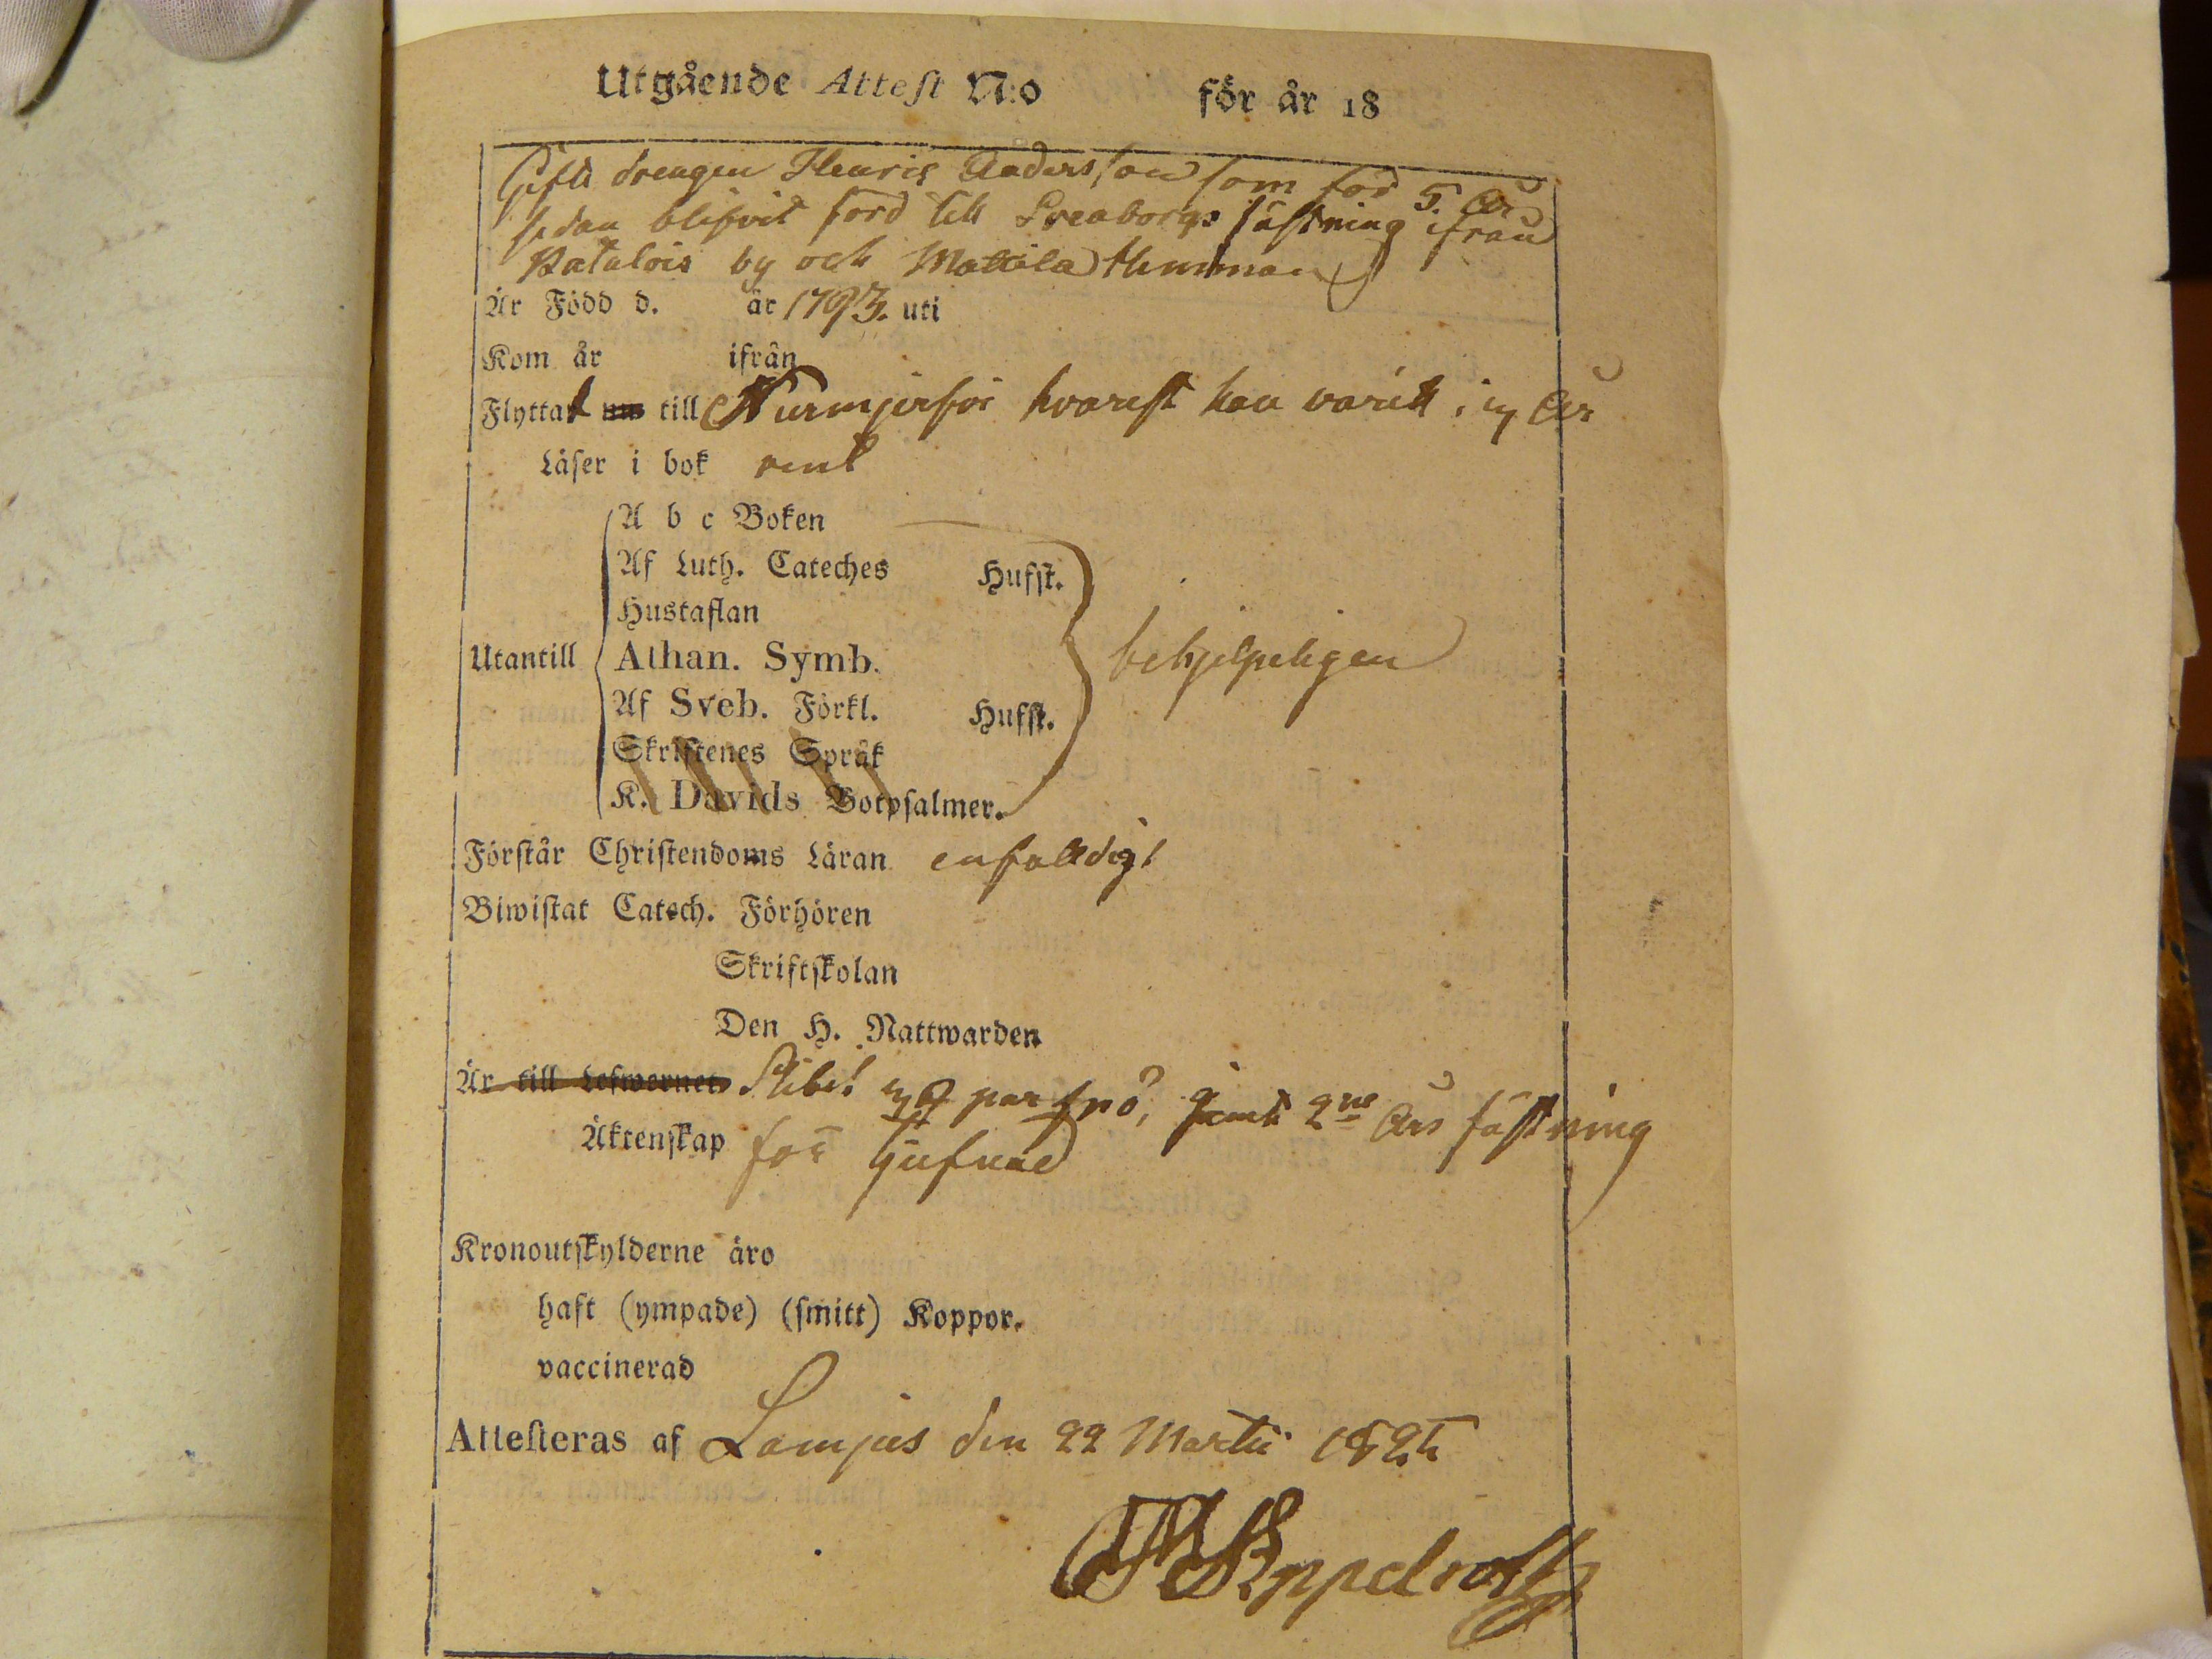 Utgående Attest N:o för år 18
Gifta drengen Henric Andersson som för 5. År
sedan blifvit förd till Sveaborgs fästning ifrån
Patalois by och Mattila Hemman
Är Född d. år 1793. uti
Kom år ifrån
Flyttat till Nurmijerfvi hvarest han varit i År
Läser i bok rent
A b c Boken
Af Luth. Cateches Hufst.
Hustaflan
Utantill Athan. Symb. behjelpeligen
Af Sveb. Förkl. Hufst.
Skriftenes Språk
K. Davids Botpsalmer.
Förstår Christendoms Läran enfaldigt
Biwistat Catech. Förhören
Skriftskolan
Den H. Nattwarden
Är till Lefwernet Slitit par spö, samt 2ne Års fästning
Äktenskap för tjufnad
Kronoutskylderne äro
haft (ympade) (smitt) Koppor.
vaccinerad
Attesteras af Lampis den 22 Martii